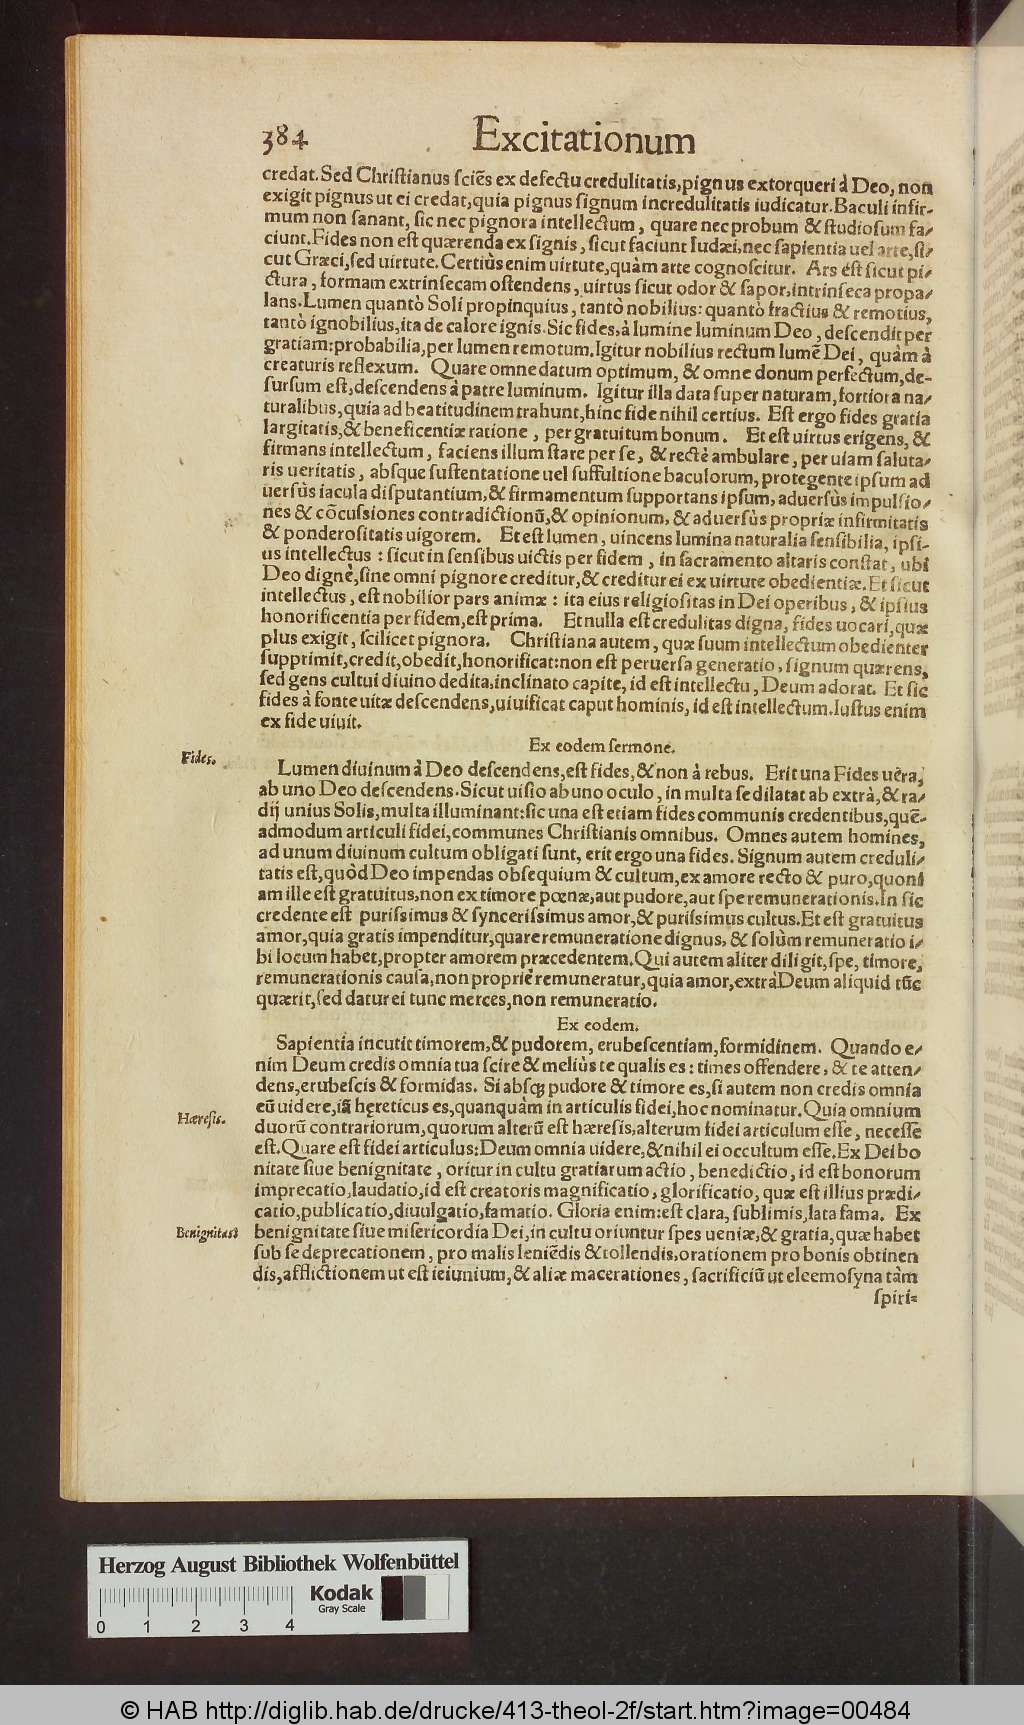 384 Excitationum
credat. Sed Christianus sciẽs ex defectu credulitatis, pignus extorqueri à Deo, non
exigit pignus ut ei credat, quia pignus signum incredulitatis iudicatur. Baculi infir-
mum non sanant, sic nec pignora intellectum, quare nec probum & studiosum fa/
ciunt. Fides non est quærenda ex signis, sicut faciunt Iudæi, nec sapientia uel arte, si/
cut Græci, sed uirtute. Certiùs enim uirtute, quàm arte cognoscitur. Ars est sicut pi/
ctura, formam extrinsecam ostendens, uirtus sicut odor & sapor, intrinseca propa/
lans. Lumen quantò Soli propinquius, tantò nobilius: quantò fractius & remotius,
tantò ignobilius, ita de calore ignis. Sic fides, à lumine luminum Deo, descendit per
gratiam: probabilia, per lumen remotum. Igitur nobilius rectum lumẽ Dei, quàm à
creaturis reflexum. Quare omne datum optimum, & omne donum perfectum, de-
sursum est, descendens à patre luminum. Igitur illa data super naturam, fortiora na/
turalibus, quia ad beatitudinem trahunt, hinc fide nihil certius. Est ergo fides gratia
largitatis, & beneficentiæ ratione, per gratuitum bonum. Et est uirtus erigens, &
firmans intellectum, faciens illum stare per se, & rectè ambulare, per uiam saluta/
ris ueritatis, absque sustentatione uel suffultione baculorum, protegente ipsum ad
uersùs iacula disputantium, & firmamentum supportans ipsum, aduersùs impulsio/
nes & cõcussiones contradictionũ, & opinionum, & aduersùs propriæ infirmitatis
& ponderositatis uigorem. Et est lumen, uincens lumina naturalia sensibilia, ipsi-
us intellectus: sicut in sensibus uictis per fidem, in sacramento altaris constat, ubi
Deo dignè, sine omni pignore creditur, & creditur ei ex uirtute obedientiæ. Et sicut
intellectus, est nobilior pars animæ: ita eius religiositas in Dei operibus, & ipsius
honorificentia per fidem, est prima. Et nulla est credulitas digna, fides uocari, quæ
plus exigit, scilicet pignora. Christiana autem, quæ suum intellectum obedienter
supprimit, credit, obedit, honorificat: non est peruersa generatio, signum quærens,
sed gens cultui diuino dedita, inclinato capite, id est intellectu, Deum adorat. Et sic
fides à fonte uitæ descendens, uiuificat caput hominis, id est intellectum. Iustus enim
ex fide uiuit.
Ex eodem sermone.
Fides.
Lumen diuinum à Deo descendens, est fides, & non à rebus. Erit una Fides uera,
ab uno Deo descendens. Sicut uisio ab uno oculo, in multa se dilatat ab extrà, & ra/
dij unius Solis, multa illuminant: sic una est etiam fides communis credentibus, quẽ-
admodum articuli fidei, communes Christianis omnibus. Omnes autem homines,
ad unum diuinum cultum obligati sunt, erit ergo una fides. Signum autem creduli/
tatis est, quòd Deo impendas obsequium & cultum, ex amore recto & puro, quoni
am ille est gratuitus, non ex timore pœnæ, aut pudore, aut spe remunerationis. In sic
credente est purissimus & syncerissimus amor, & purissimus cultus. Et est gratuitus
amor, quia gratis impenditur, quare remuneratione dignus, & solùm remuneratio i/
bi locum habet, propter amorem præcedentem. Qui autem aliter diligit, spe, timore,
remunerationis causa, non propriè remuneratur, quia amor, extrà Deum aliquid tũc
quærit, sed datur ei tunc merces, non remuneratio.
Ex eodem.
Sapientia incutit timorem, & pudorem, erubescentiam, formidinem. Quando e/
nim Deum credis omnia tua scire & meliùs te qualis es: times offendere, & te atten/
dens, erubescis & formidas. Si absqꝫ pudore & timore es, si autem non credis omnia
Hæresis.
eũ uidere, iã hęreticus es, quanquàm in articulis fidei, hoc nominatur. Quia omnium
duorũ contrariorum, quorum alterũ est hæresis, alterum fidei articulum esse, necesse
est. Quare est fidei articulus: Deum omnia uidere, & nihil ei occultum esse. Ex Dei bo
nitate siue benignitate, oritur in cultu gratiarum actio, benedictio, id est bonorum
imprecatio, laudatio, id est creatoris magnificatio, glorificatio, quæ est illius prædi/
catio, publicatio, diuulgatio, famatio. Gloria enim: est clara, sublimis, lata fama. Ex
Benignitas
benignitate siue misericordia Dei, in cultu oriuntur spes ueniæ, & gratia, quæ habet
sub se deprecationem, pro malis leniẽdis & tollendis, orationem pro bonis obtinen
dis, afflictionem ut est ieiunium, & aliæ macerationes, sacrificiũ ut eleemosyna tàm
spiri=
Herzog August Bibliothek Wolfenbüttel
Kodak
Gray Scale
0 1 2 3 4
© HAB http://diglib.hab.de/drucke/413-theol-2f/start.htm?image=00484